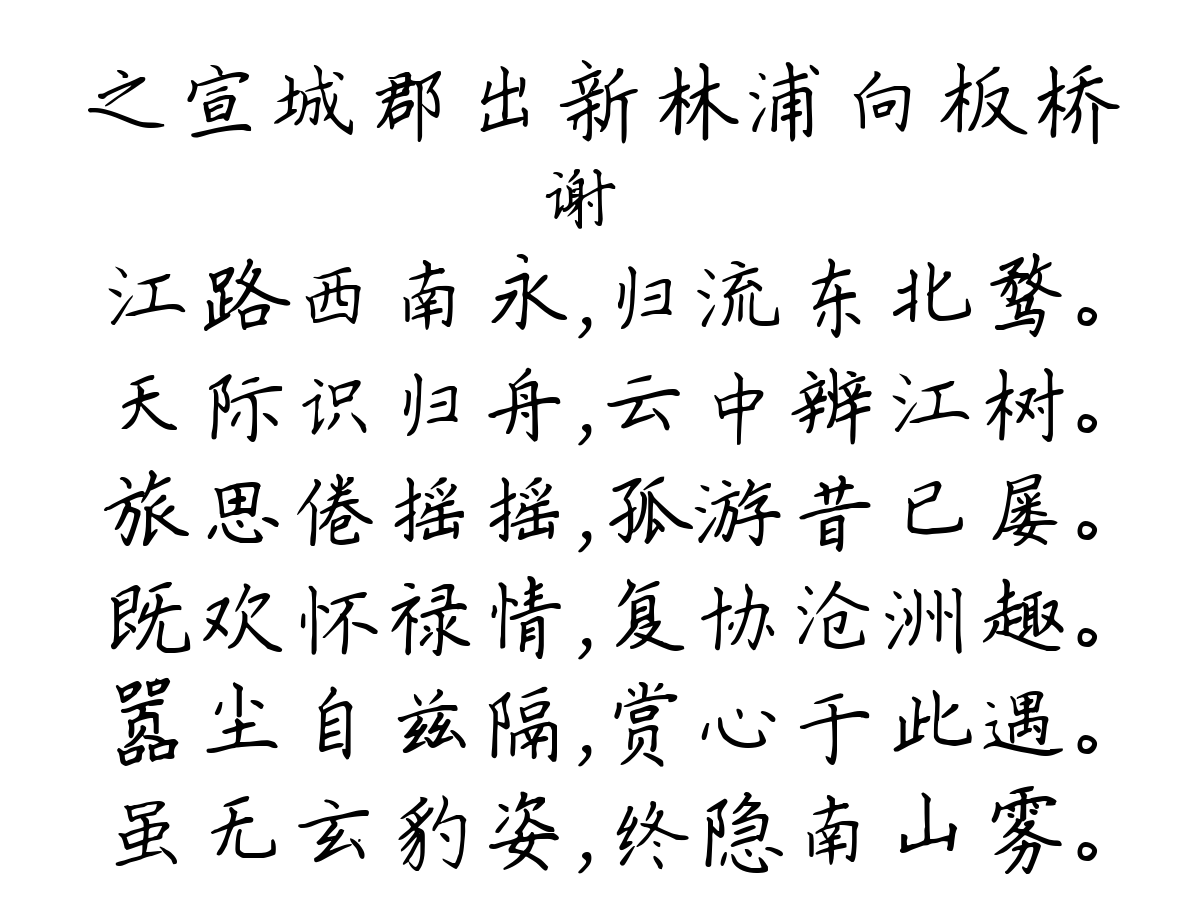 之宣城郡出新林浦向板桥
谢
江路西南永,归流东北鹜。
天际识归舟,云中辨江树。
旅思倦摇摇,孤游昔已屡。
既欢怀禄情,复协沧洲趣。
嚣尘自兹隔,赏心于此遇。
虽无玄豹姿,终隐南山雾。